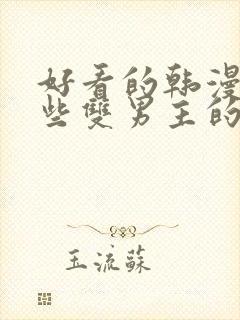 好看的韩漫
些雙男主的
玉流蘇